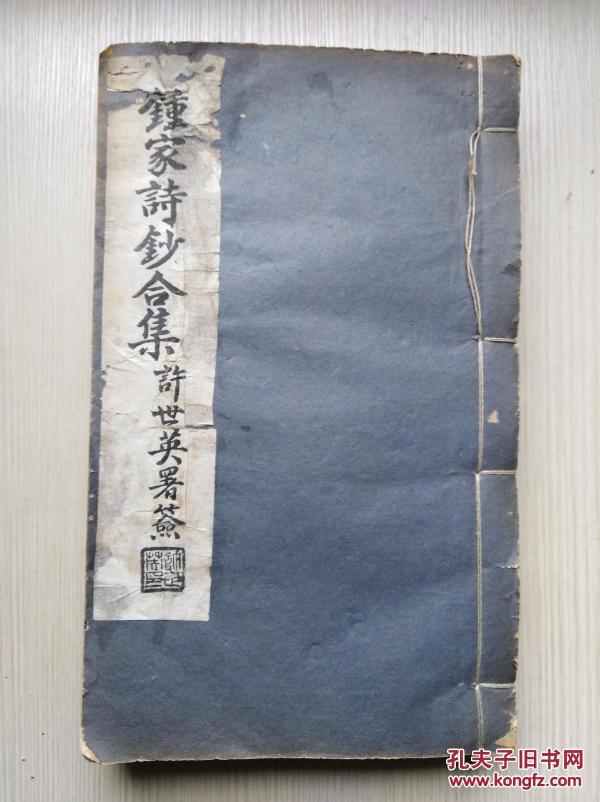 鍾家詩鈔合集
許世英署簽
孔夫子旧书网
www.kongfz.com